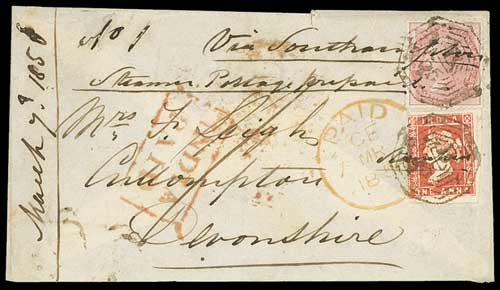 March 7th 1858
No 1
Via Southampton
Steamer Postage prepaid
Mrs F. Leigh
Cullompton
Devonshire
PAID
INDIA
ONE ANNA